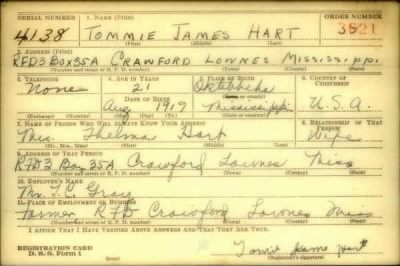 SERIAL NUMBER 1. NAME (Print) ORDER NUMBER
4138 TOMMIE JAMES HART 3821
2. ADDRESS (Print)
RFD3 BOX35A CRAWFORD LOWNES MISSISSIPP.
(Number and street or R. F. D. number) (Town) (County) (State)
3. TELEPHONE 4. AGE IN YEARS 5. PLACE OF BIRTH 6. COUNTRY OF CITIZENSHIP
None 21 Oktibbeha
DATE OF BIRTH
Aug 1919 Mississippi U. S. A.
(Exchange) (Number) (Mo.) (Day) (Yr.) (State or country)
7. NAME OF PERSON WHO WILL ALWAYS KNOW YOUR ADDRESS 8. RELATIONSHIP OF THAT PERSON
Mrs. Thelma Hart Wife
(Mr., Mrs., Miss) (First) (Middle) (Last)
9. ADDRESS OF THAT PERSON
RFD3 Box 35A Crawford Lownes Miss
(Number and street or R. F. D. number) (Town) (County) (State)
10. EMPLOYER'S NAME
Mr. T.C. Gray
11. PLACE OF EMPLOYMENT OR BUSINESS
Farmer RFD Crawford Lownes Miss
(Number and street or R. F. D. number) (Town) (County) (State)
I AFFIRM THAT I HAVE VERIFIED ABOVE ANSWERS AND THAT THEY ARE TRUE.
REGISTRATION CARD
D. S. S. Form 1
Tomie Jame Hart
(Registrant's signature)